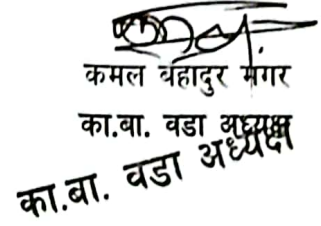 कमल बहादुर मगर
का.बा. वडा अध्यक्ष
का.बा. वडा अध्यक्ष